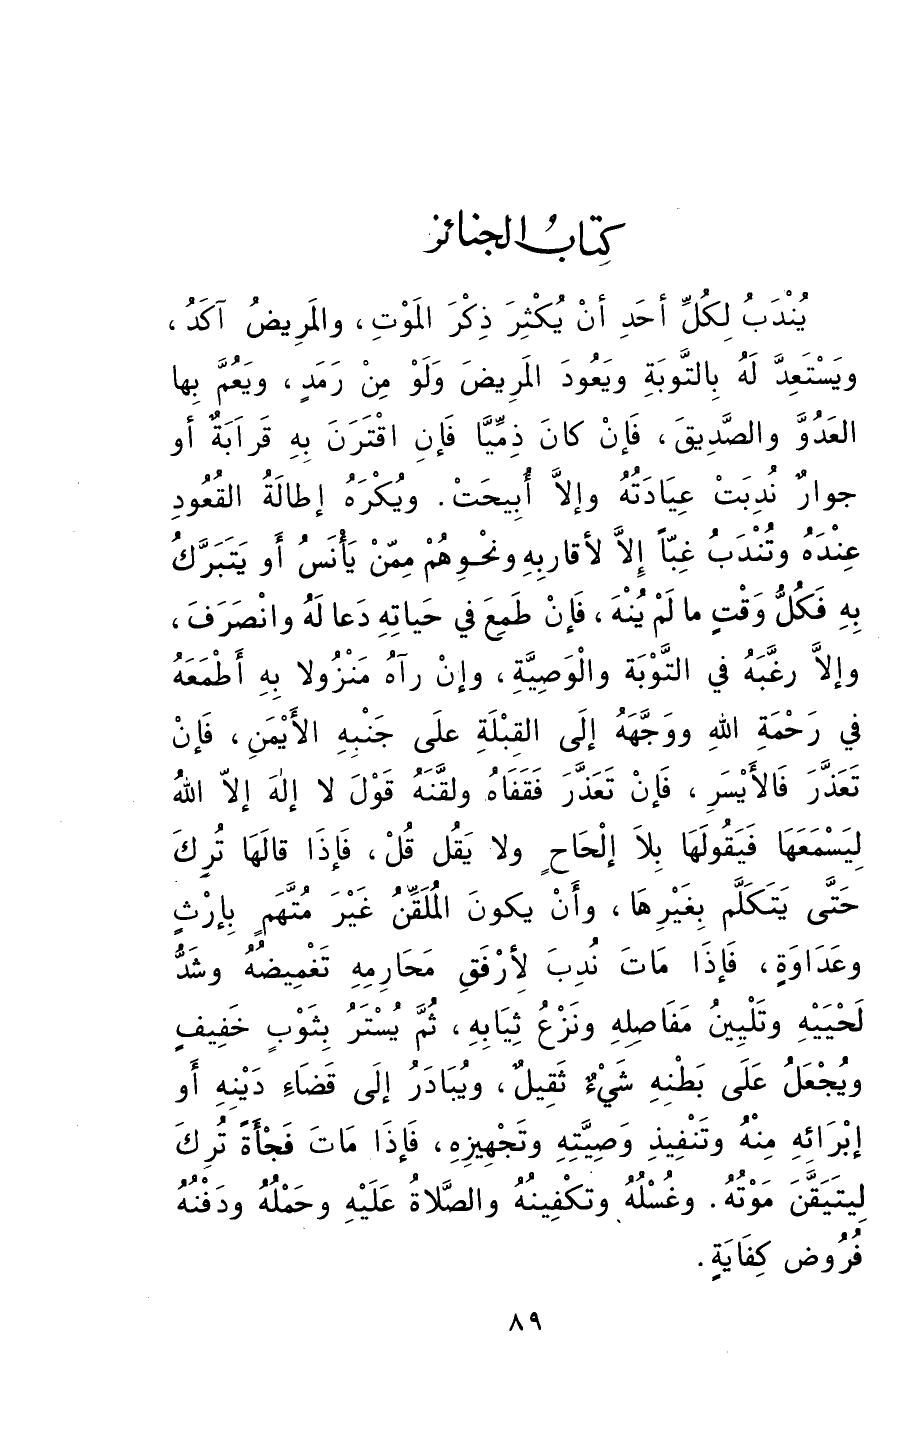 كِتابُ الجنائز
يُنْدَبُ لِكُلِّ أحَدِ أنْ يُكْثِرَ ذِكْرَ المَوْتِ، والمَرِيضُ آكَدُ،
ويَسْتَعِدَّ لَهُ بِالتَّوبَةِ ويَعُودَ المَرِيضَ وَلَوْ مِنْ رَمَدٍ، ويَعُمَّ بِها
العَدُوَّ والصَّدِيقَ، فَإنْ كانَ ذِمِّيًّا فَإنِ اقْتَرَنَ بِهِ قَرابَةٌ أو
جوارٌ نُدِبَتْ عِيَادَتُهُ وإلاَّ أُبِيحَتْ. ويُكْرَهُ إطالَةُ القُعُودِ
عِنْدَهُ وتُنْدَبُ غِبّاً إِلاَّ لأقارِبِهِ ونَحْوِهُمْ مِمّنْ يَأْنَسُ أو يَتَبَرَّكُ
بِهِ فَكُلُّ وَقْتٍ ما لَمْ يُنْهَ، فَإنْ طَمِعَ في حَياتِهِ دَعا لَهُ وانْصَرَفَ،
وإلاَّ رغَّبَهُ في التَّوْبَة والْوَصِيَّةِ، وإنْ رآهُ مَنْزُولا بِهِ أَطْمَعَهُ
في رَحْمَةِ اللهِ ووَجَّهَهُ إلَى القِبْلَةِ علَى جَنْبِهِ الأَيْمَنِ، فَإنْ
تَعَذَّرَ فَالأَيْسَرِ، فَإنْ تَعَذَّرَ فَقَفَاهُ ولقَّنَهُ قَوْلَ لا إلٰهَ إلاّ اللهُ
لِيَسْمَعَهَا فَيَقُولَهَا بِلاَ إلْحَاحٍ ولا يَقُل قُلْ، فَإذَا قالَهَا تُرِكَ
حَتَّى يَتَكَلَّم بِغَيْرِهَا، وأَنْ يكونَ المُلَقِّنُ غَيْرَ مُتَّهَمٍ بِإرْثٍ
وعَدَاوَةٍ، فَإذَا مَاتَ نُدِبَ لِأرْفَقِ مَحَارِمِهِ تَغْمِيضُهُ وشَدُّ
لَحْيَيْهِ وتَلْيِينُ مَفَاصِلِهِ ونَزْعُ ثِيَابِهِ، ثُمَّ يُسْتَرُ بِثَوْبٍ خَفِيفٍ
ويُجْعَلُ عَلَى بَطْنِهِ شَيْءٌ ثَقِيلٌ، ويُبَادَرُ إلَى قَضَاءِ دَيْنِهِ أَو
إبْرَائِهِ مِنْهُ وتَنْفِيذِ وَصِيَّتِهِ وتَجْهِيزِهِ، فَإذَا مَاتَ فَجْأَةً تُرِكَ
لِيتَيَقَّنَ مَوْتُهُ. وغُسْلُهُ وتكْفِينُهُ والصَّلاةُ عَلَيْهِ وحَمْلُهُ ودَفْنُهُ
فُرُوض كِفَايَةٍ.
٨٩